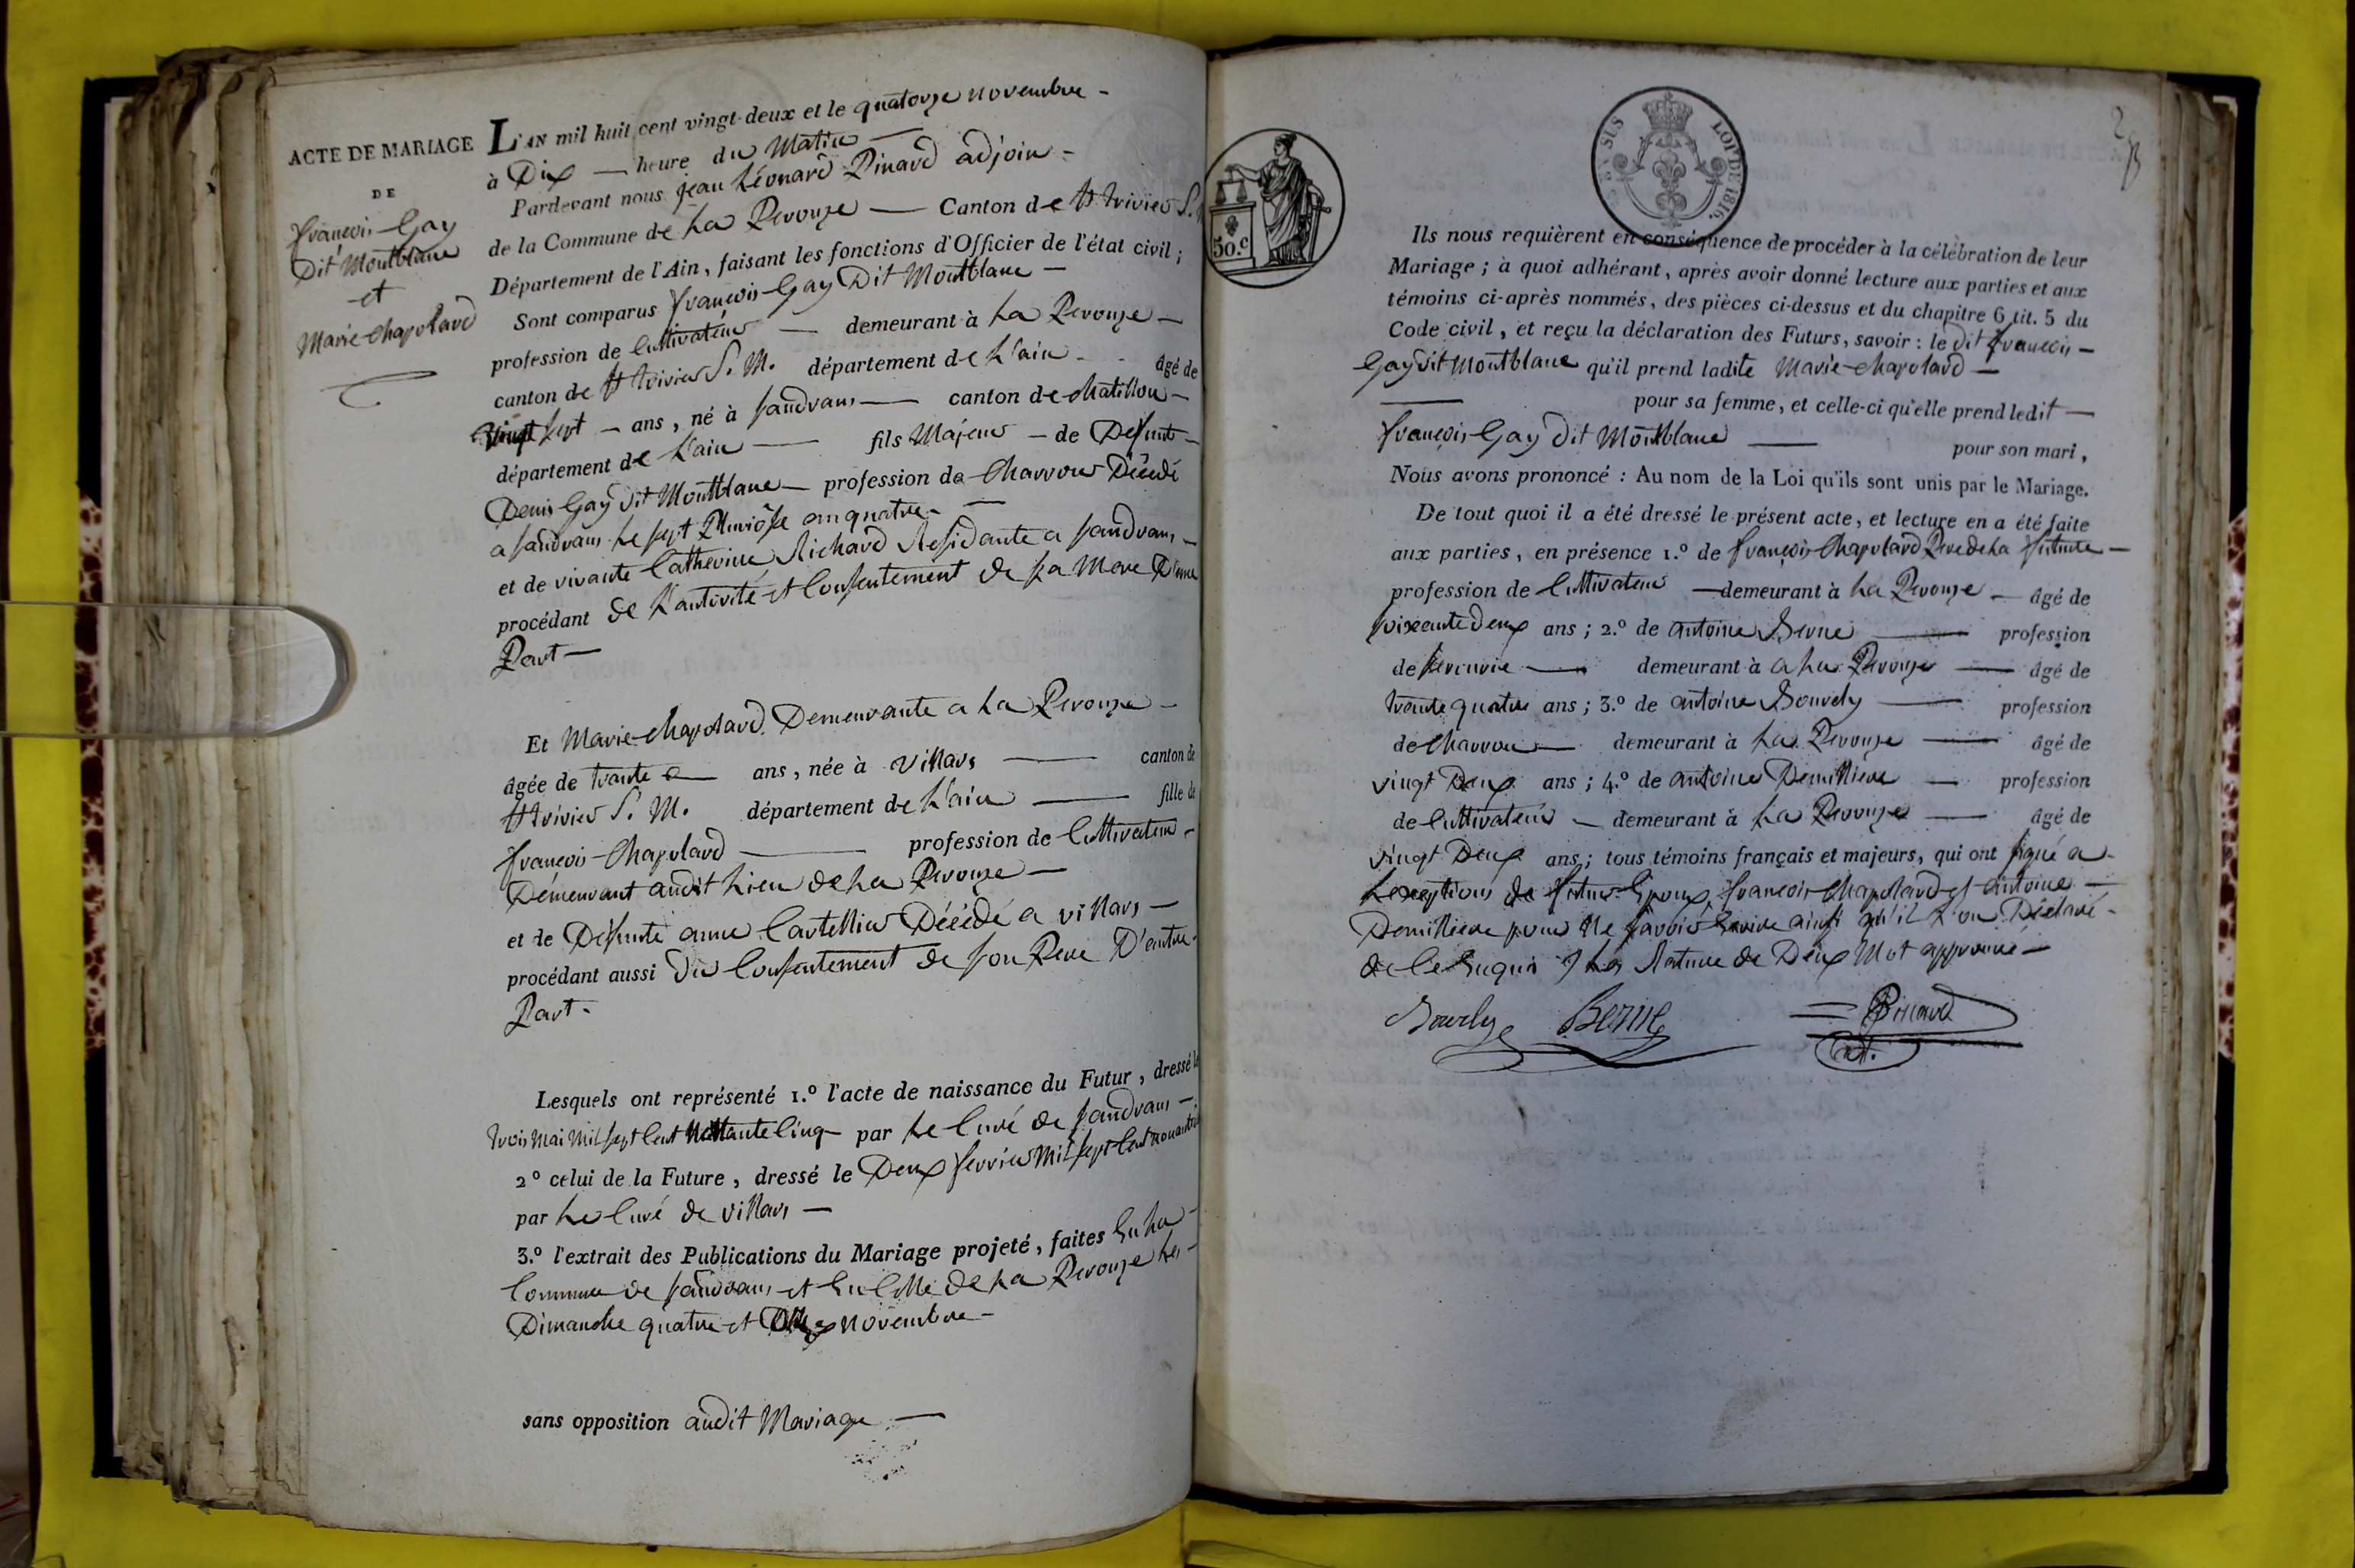 ACTE DE MARIAGE
DE
françois Gay
Dit Montblanc
et
Marie Chapolard
L'AN mil huit cent vingt-deux et le quatorze novembre -
à Dix — heure du Matin —
Pardevant nous jean Léonard Pinard adjoin -
de la Commune de La Perouze — Canton de St trivier S.
Département de l'Ain, faisant les fonctions d'Officier de l'état civil ;
Sont comparus françois Gay Dit Montblanc —
profession de Cultivateur — demeurant à La Perouze —
canton de St trivier S. M. département de L'ain - âgé de
vingt sept — ans, né à Sandrans — canton de Chatillon —
département de L'ain — fils Majeur — de Defunt —
Denis Gay dit Montblanc — profession de Charron Décédé
a Sandrans Le sept Pluviôse an quatre —
et de vivante Catherine Richard Residante a Sandrans —
procédant de L'autorité et Consentement de sa Mere D'une
Part —
Et Marie Chapolard Demeurante a La Perouze —
âgée de trante — ans, née à Villars — canton de
St trivier S. M. département de L'ain — fille de
françois Chapolard — profession de Cultivateur -
Demeurant audit Lieu de La Perouze —
et de Defunte anne Cartellier Décédé a villars —
procédant aussi du Consentement de son Pere D'autre -
Part -
Lesquels ont représenté 1.º l'acte de naissance du Futur, dressé le
trois Mai Mil sept Cent Cinq par Le Curé de Sandrans —
2º celui de la Future, dressé le Deux fevrier Mil sept Cent
par Le Curé de villars —
3.º l'extrait des Publications du Mariage projeté, faites En La -
Commune de Sandrans et En Celle de La Perouze Les -
Dimanche quatre et novembre -
sans opposition audit Mariage —
30.c
LOI DE 1816
Ils nous requièrent en conséquence de procéder à la célébration de leur
Mariage ; à quoi adhérant, après avoir donné lecture aux parties et aux
témoins ci-après nommés, des pièces ci-dessus et du chapitre 6 tit. 5 du
Code civil, et reçu la déclaration des Futurs, savoir : le dit françois —
Gay dit Montblanc qu'il prend ladite Marie Chapolard —
— pour sa femme, et celle-ci qu'elle prend ledit —
françois Gay dit Montblanc — pour son mari,
Nous avons prononcé : Au nom de la Loi qu'ils sont unis par le Mariage.
De tout quoi il a été dressé le présent acte, et lecture en a été faite
aux parties, en présence 1.º de françois Chapolard Pere de La future —
profession de Cultivateur — demeurant à La Perouze — âgé de
soixante Deux ans ; 2.º de antoine Berne — profession
de — demeurant à a La Perouze — âgé de
trante quatre ans ; 3.º de antoine Bourdy — profession
de Charron — demeurant à La Perouze — âgé de
vingt Deux ans ; 4.º de antoine Demilliere — profession
de Cultivateur — demeurant à La Perouze — âgé de
vingt Deux ans ; tous témoins français et majeurs, qui ont signé a -
Lexeptions de futur Epoux, françois Chapolard et antoine —
Demilliere pour Ne savoir Ecrire ainsi qu'il L'on Déclaré -
de Ce Enquis La Rature de Deux Mot approuvé —
Bourdy Berne Pinard
adt.